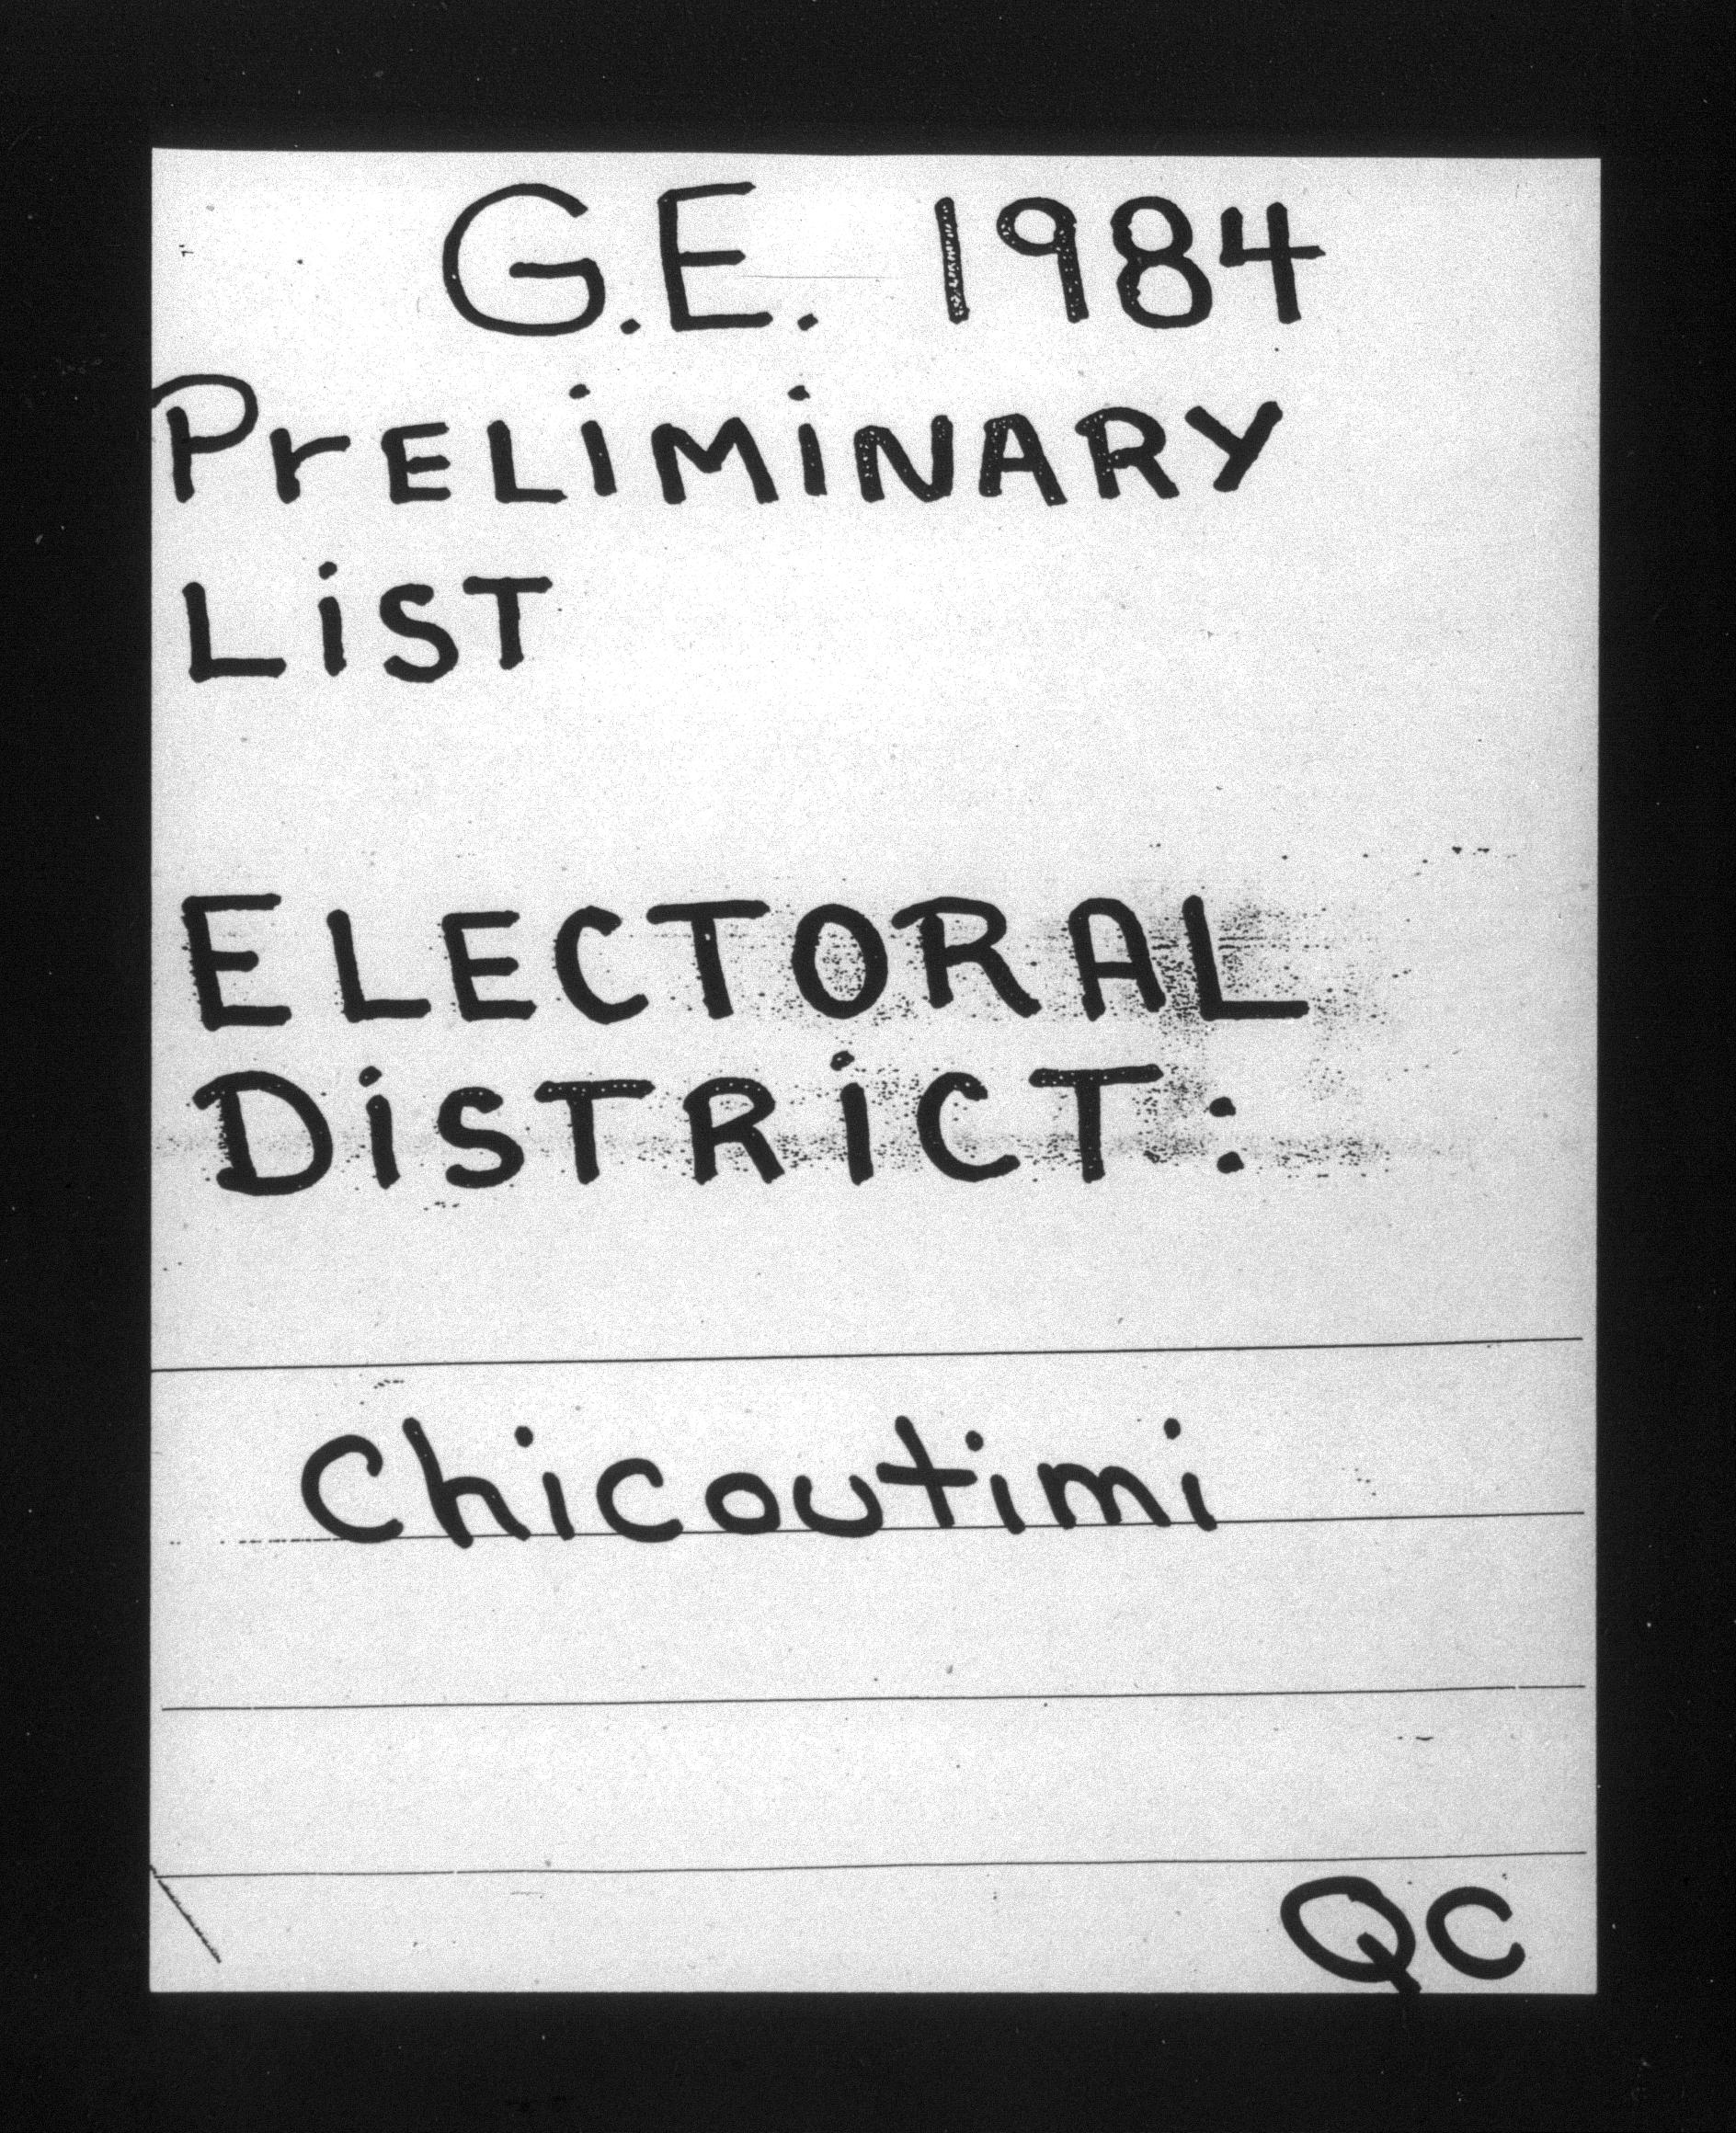 G.E. 1984
PreLiMiNARY
LiST
ELECTORAL
DiSTRiCT:
Chicoutimi
QC